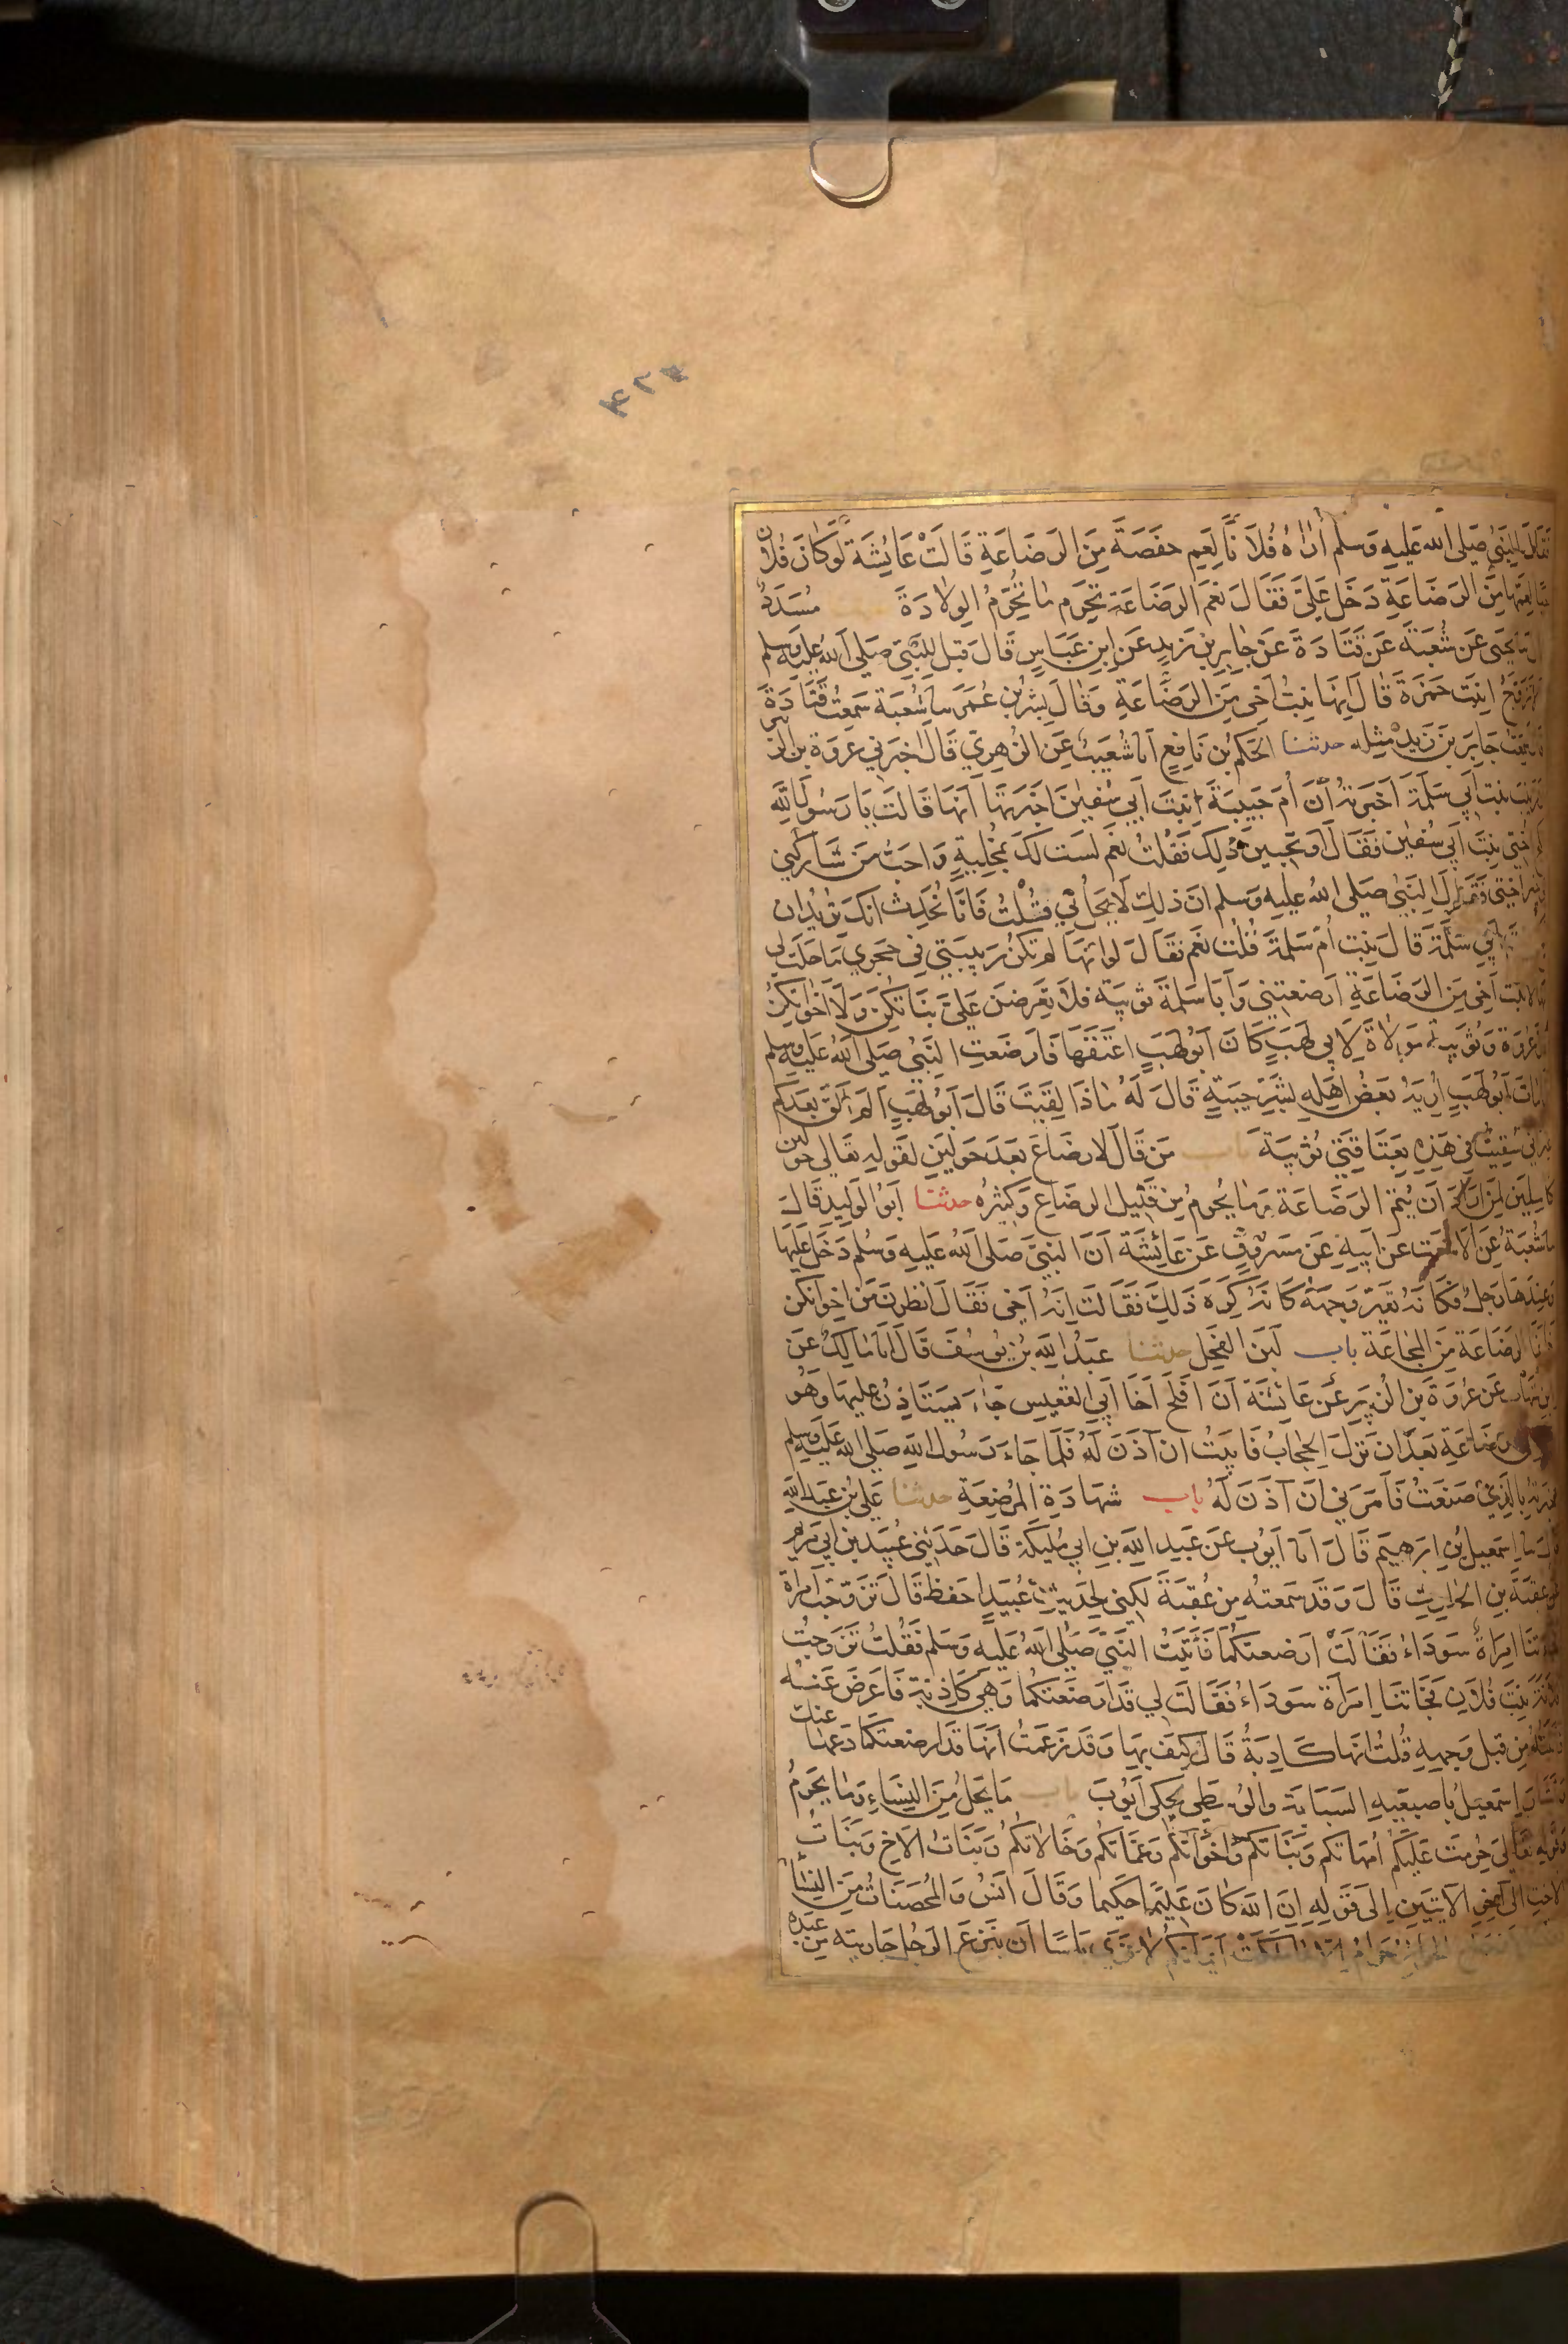 ٤٢٣
فقال النبي صلى الله عليه وسلم أراه فلانا لعم حفصة من الرضاعة قالت عائشة لو كان فلان
حيا لعمها من الرضاعة دخل علي فقال نعم الرضاعة تحرم ما تحرم الولادة مسدد
يحيى عن شعبة عن قتادة عن جابر بن زيد عن ابن عباس قال قيل للنبي صلى الله عليه وسلم
ابنت حمزة قال إنها بنت أخي من الرضاعة وقال بشر بن عمر سا شعبة سمعت قتادة
سمعت جابر بن زيد مثله حدثنا الحكم بن نافع أنا شعيب عن الزهري قال أخبرني عروة بن الزبير
زينب بنت أبي سلمة أخبرته أن أم حبيبة ابنت أبي سفين أخبرتها أنها قالت يا رسول الله
أختي بنت أبي سفين فقال أو تحبين ذلك فقلت نعم لست لك بمخلية وأحب من شاركني
أختي فقال النبي صلى الله عليه وسلم إن ذلك لا يحل لي قلت فإنا نحدث أنك تريد أن
أبي سلمة قال بنت أم سلمة قلت نعم فقال لو أنها لم تكن ربيبتي في حجري ما حلت لي
إنها لابنت أخي من الرضاعة أرضعتني وأبا سلمة ثويبة فلا تعرضن علي بناتكن ولا أخواتكن
عروة وثويبة مولاة لأبي لهب كان أبو لهب أعتقها فأرضعت النبي صلى الله عليه وسلم
مات أبو لهب أريه بعض أهله بشر حيبة قال له ماذا لقيت قال أبو لهب لم ألق بعدكم
غير أني سقيت في هذه بعتاقتي ثويبة باب من قال لا رضاع بعد حولين لقوله تعالى حولين
كاملين لمن أراد أن يتم الرضاعة وما يحرم من قليل الرضاع وكثيره حدثنا أبو الوليد قال
سا شعبة عن الأشعث عن أبيه عن مسروق عن عائشة أن النبي صلى الله عليه وسلم دخل عليها
وعندها رجل فكأنه تغير وجهه كأنه كره ذلك فقالت إنه أخي فقال انظرن من إخوانكن
فإنما الرضاعة من المجاعة باب لبن الفحل حدثنا عبد الله بن يوسف قال أنا مالك عن
ابن شهاب عن عروة بن الزبير عن عائشة أن أفلح أخا أبي القعيس جاء يستأذن عليها وهو
الرضاعة بعد أن نزل الحجاب فأبيت أن آذن له فلما جاء رسول الله صلى الله عليه وسلم
أخبرته بالذي صنعت فأمرني أن آذن له باب شهادة المرضعة حدثنا علي بن عبد الله
قال سا إسمعيل بن إبرهيم قال أنا أيوب عن عبيد الله بن أبي مليكة قال حدثني عبيد بن أبي مريم
عن عقبة بن الحارث قال وقد سمعته من عقبة لكني لحديث عبيد أحفظ قال تزوجت امرأة
فجاءتنا امرأة سوداء فقالت أرضعتكما فأتيت النبي صلى الله عليه وسلم فقلت تزوجت
فلانة بنت فلان فجاءتنا امرأة سوداء فقالت لي قد أرضعتكما وهي كاذبة فأعرض عنه
من قبل وجهه قلت إنها كاذبة قال كيف بها وقد زعمت أنها قد أرضعتكما دعها عنك
وأشار إسمعيل بإصبعيه السبابة والوسطى يحكي أيوب باب ما يحل من النساء وما يحرم
وقوله تعالى حرمت عليكم أمهاتكم وبناتكم وأخواتكم وعماتكم وخالاتكم وبنات الأخ وبنات
الأخت إلى آخر الآيتين إلى قوله إن الله كان عليما حكيما وقال أنس والمحصنات من النساء
الحرائر حرام إلا ما ملكت أيمانكم لا يرى بأسا أن ينزع الرجل جاريته من عبده